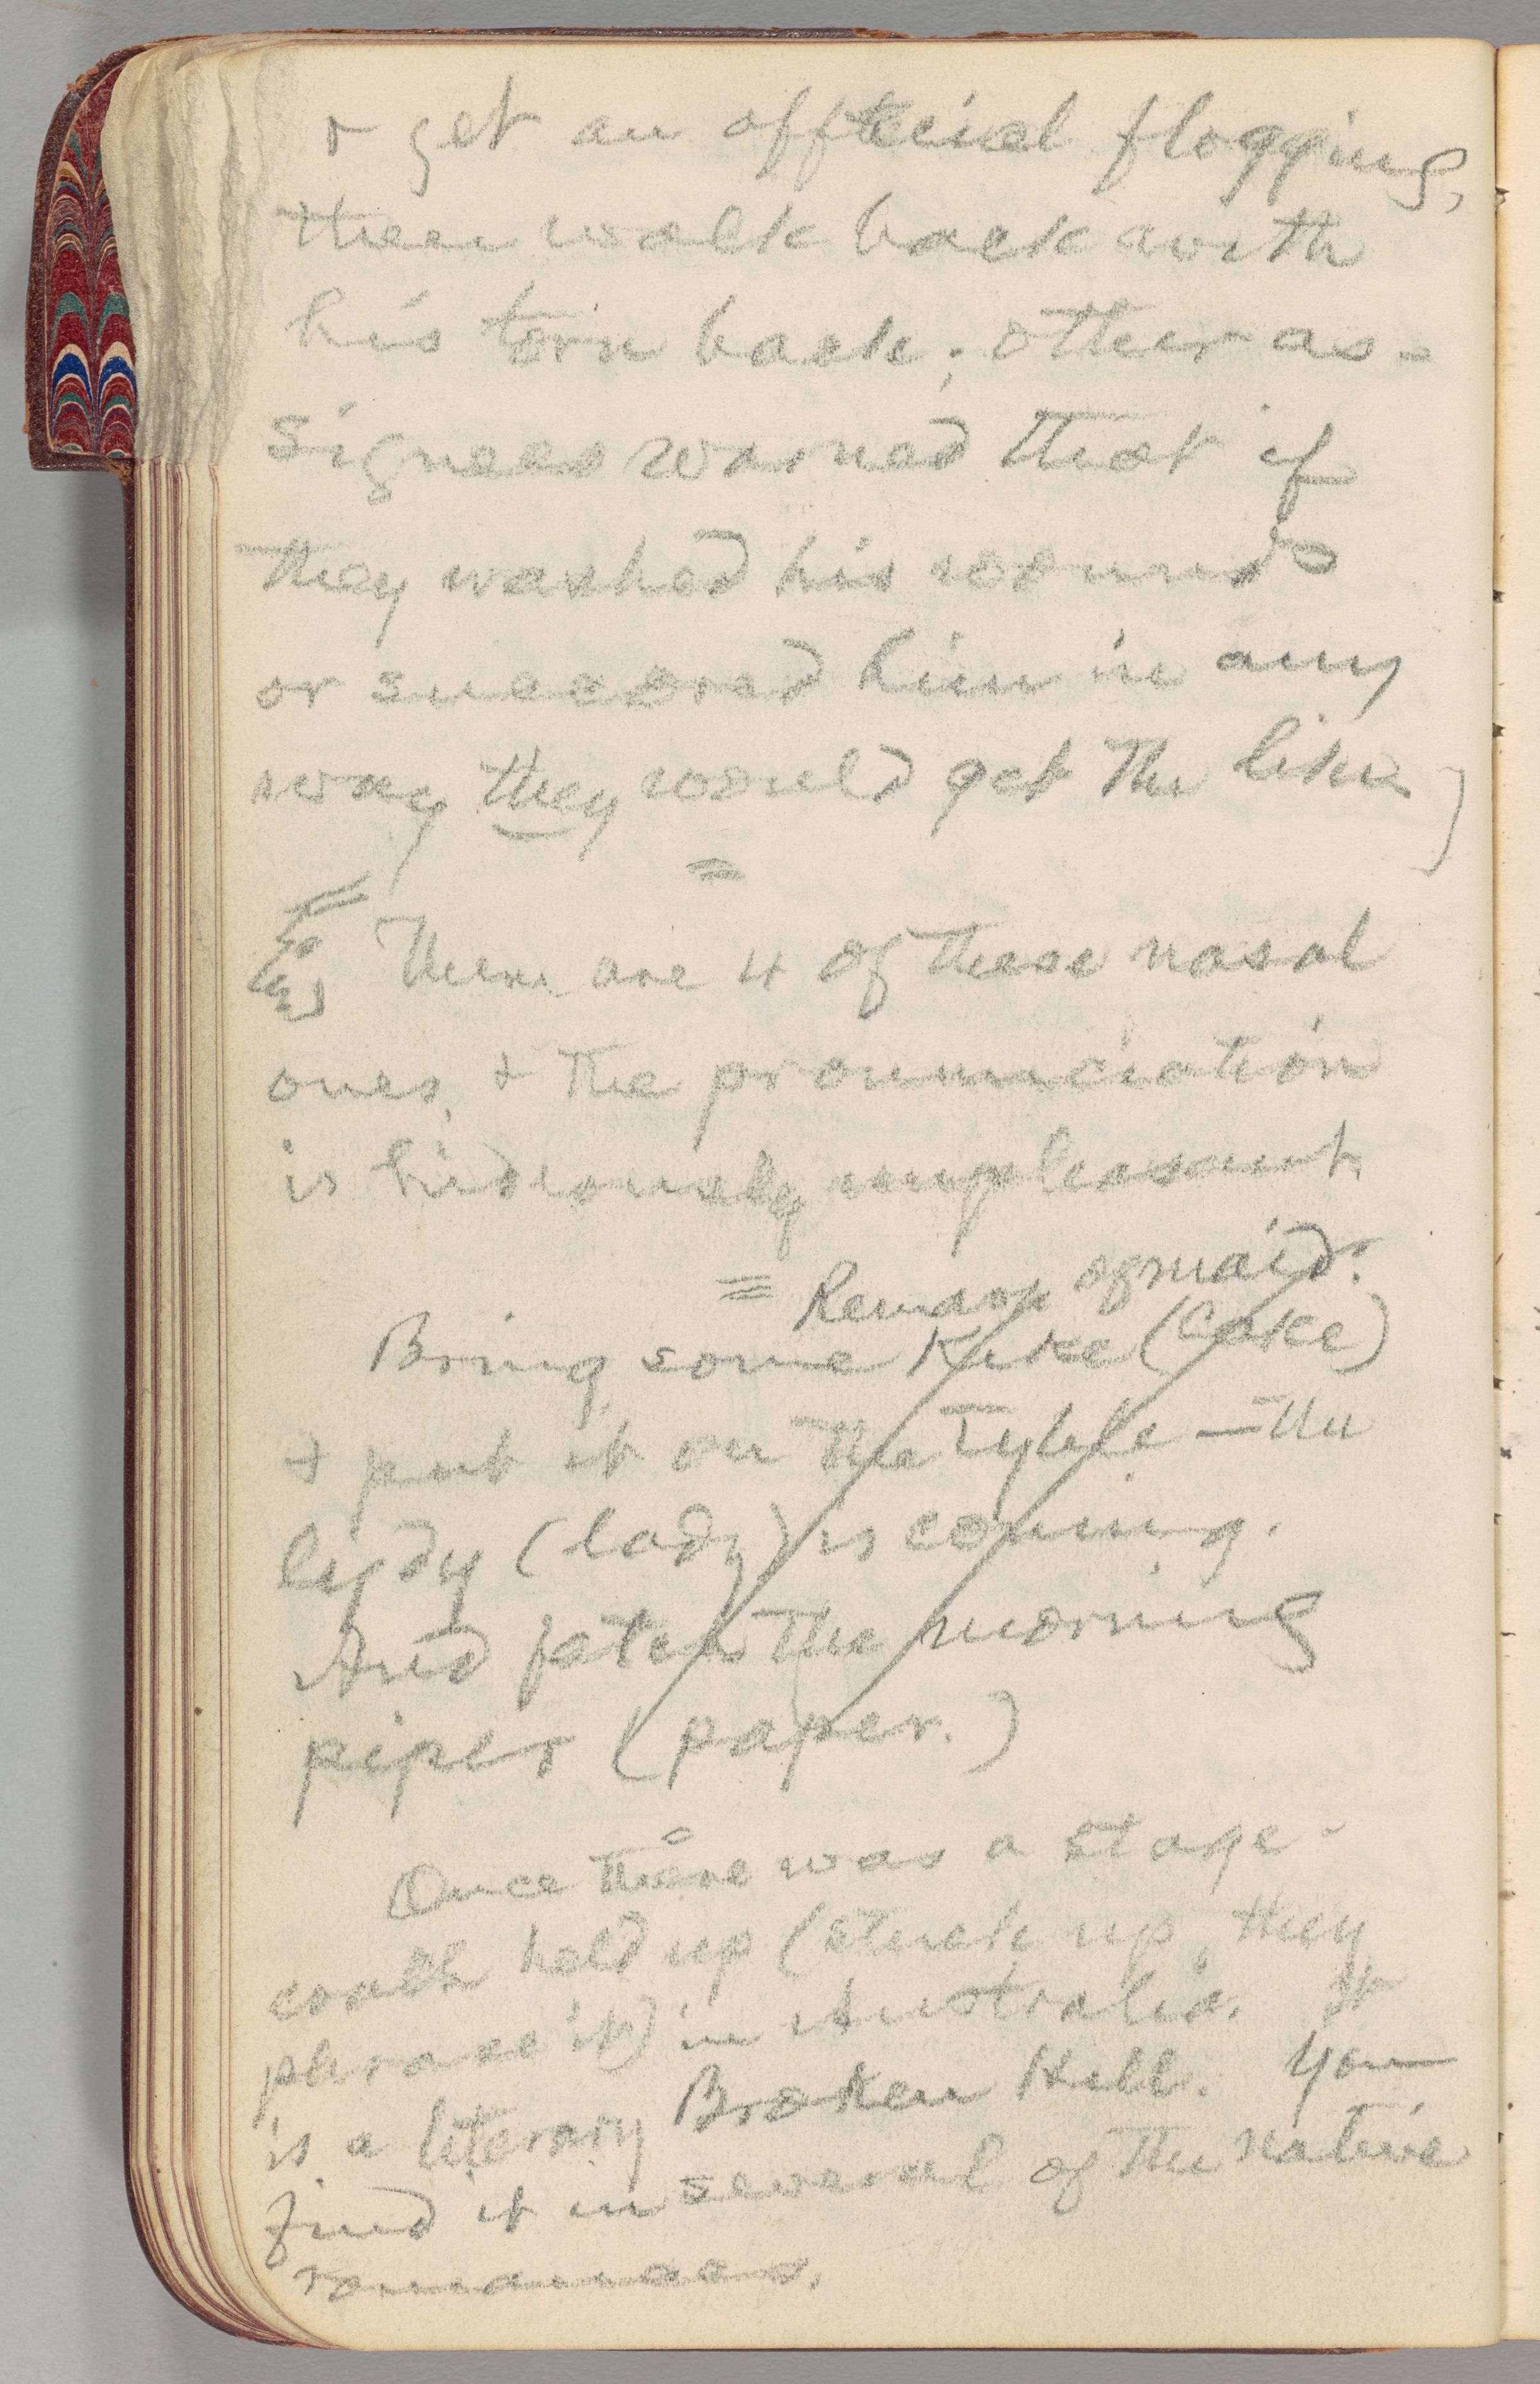 & get an official flogging,
then walk back with
his torn back; other as-
signees warned that if
they washed his wounds
or succored him in any
way they would get the like.
=
There are 4 of these nasal
ones, & the pronunciation
is hideously unpleasant.
= Remark of maid:
Bring some Kike (Cake)
& put it on the Tyble — the
lydy (lady) is coming.
And fetch the morning
piper (paper.)
=
Once there was a stage-
coach held up (stuck up, they
phrase it) in Australia. It
is a literary Broken Hill. You
find it in several of the native
romances.